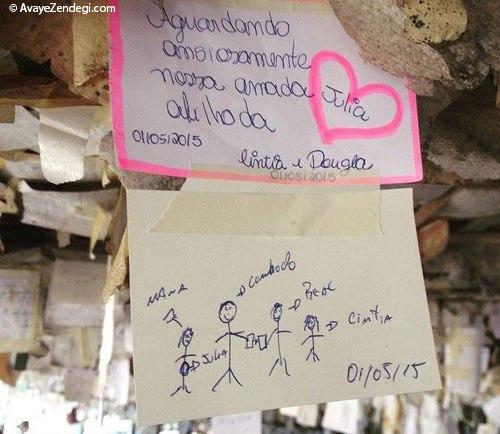 © AvayeZendegi.com
Aguardando
ansiosamente
nossa amada Julia
afilhada
01/05/2015
Cintia e Dougla
01/05/2015
MANA
Cunhado
JULIA
CINTIA
01/05/15